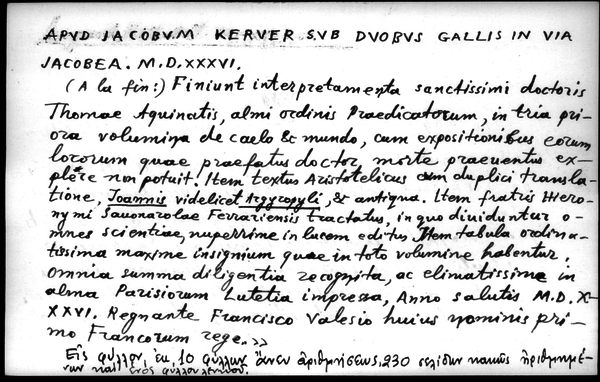 APVD IACOBVM KERVER SVB DVOBVS GALLIS IN VIA
JACOBEA. M.D.XXXVI.
(A la fin:) Finiunt interpretamenta sanctissimi doctoris
Thomae Aquinatis, almi ordinis Praedicatorum, in tria pri-
ora volumina de caelo & mundo, cum expositionibus eorum
locorum quae praefatus doctor, morte praeuentus ex-
plere non potuit. Item textus Aristotelicus cum duplici transla-
tione, Joannis videlicet Argyropyli, & antiqua. Item fratris Hiero-
nymi Sauonarolae Ferrariensis tractatus, in quo diuiduntur o-
mnes scientiae, nuperrime in lucem editus Item tabula ordina-
tissima maxime insignium quae in toto volumine habentur.
Omnia summa diligentia recognita, ac elimatissime in
alma Parisiorum Lutetia impressa, Anno salutis M.D.X-
XXVI. Regnante Francisco Valesio huius nominis pri-
mo Francorum rege.>>
Εἷς φύλλον, 10 φύλλων ἄνευ ἀριθμήσεως, 230 σελίδων ἠριθμημέ-
νων καὶ ἑνὸς φύλλου λευκοῦ.